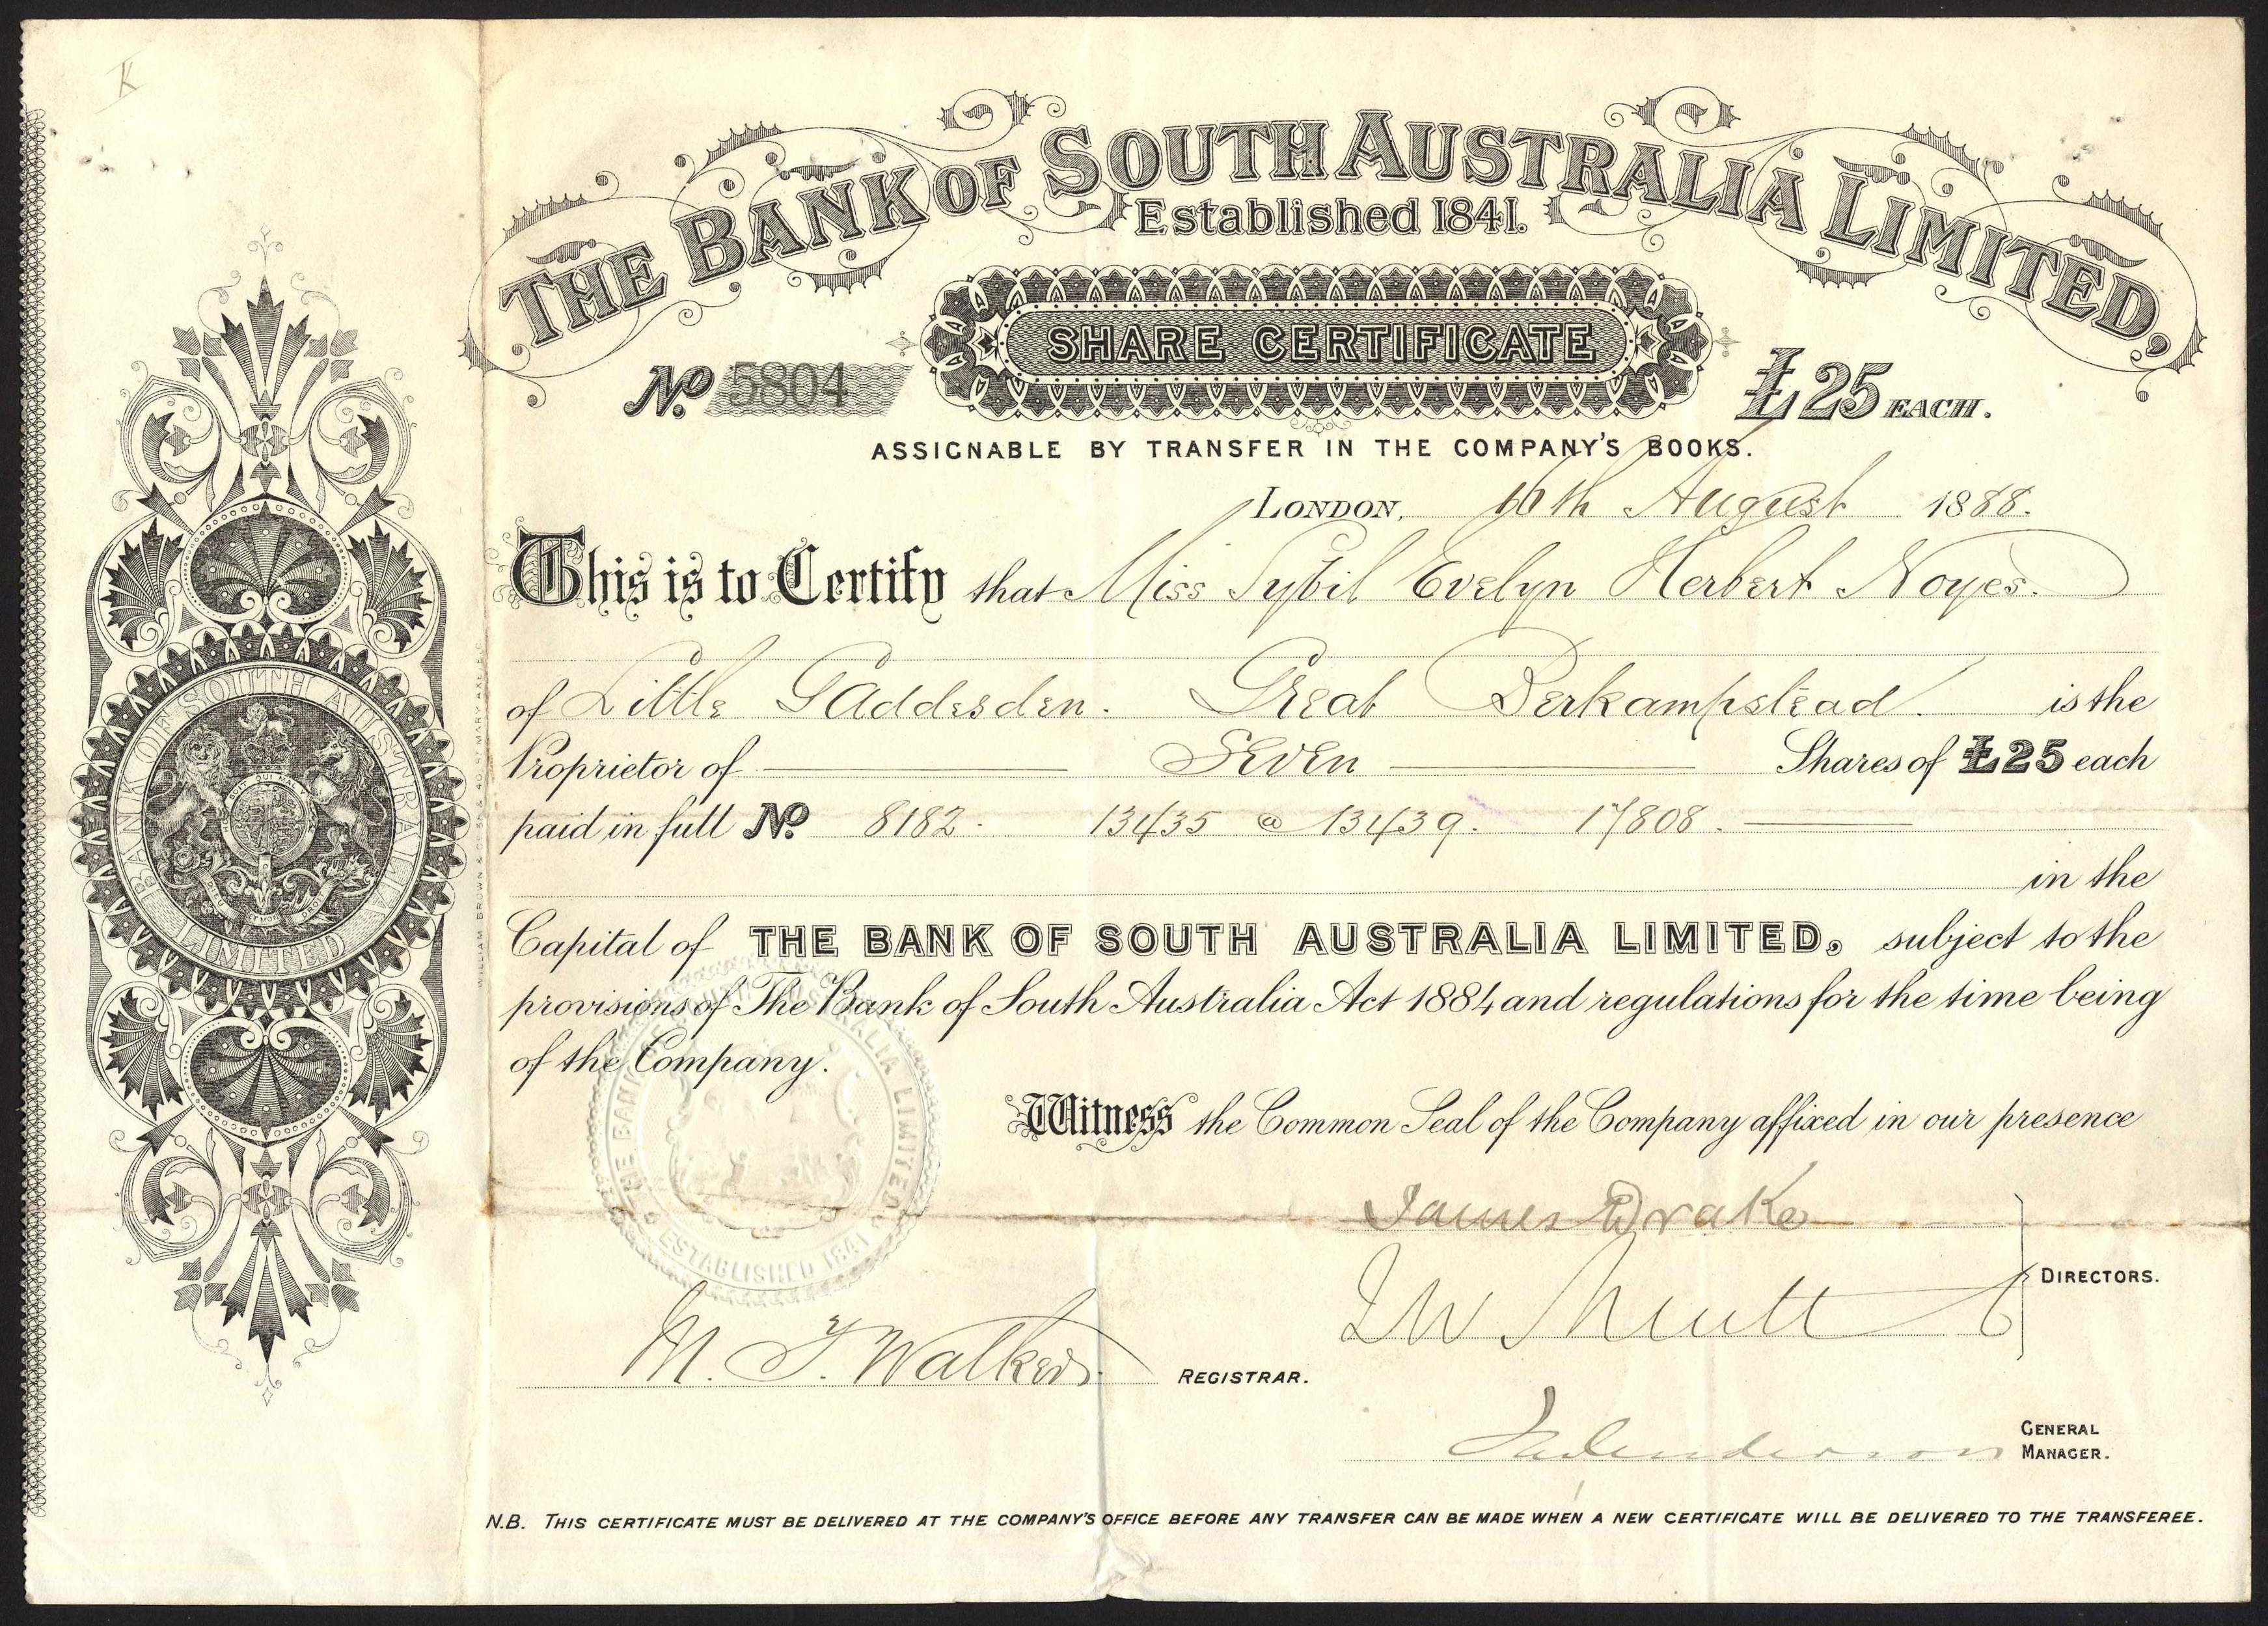 K
THE BANK OF SOUTH AUSTRALIA LIMITED,
Established 1841.
SHARE CERTIFICATE
No. 5804
£25 EACH.
ASSIGNABLE BY TRANSFER IN THE COMPANY'S BOOKS.
LONDON, 16th August 1888.
This is to Certify that Miss Sybil Evelyn Herbert Noyes.
of Little Gaddesden. Great Berkampstead. is the
Proprietor of Seven Shares of £25 each
paid in full No. 8182. 13435 @ 13439. 17808.
in the
Capital of THE BANK OF SOUTH AUSTRALIA LIMITED, subject to the
provisions of The Bank of South Australia Act 1884 and regulations for the time being
of the Company.
Witness the Common Seal of the Company affixed in our presence
James Drake
DIRECTORS.
M. T. Walker
REGISTRAR.
GENERAL
MANAGER.
N.B. THIS CERTIFICATE MUST BE DELIVERED AT THE COMPANY'S OFFICE BEFORE ANY TRANSFER CAN BE MADE WHEN A NEW CERTIFICATE WILL BE DELIVERED TO THE TRANSFEREE.
BANK OF SOUTH AUSTRALIA
LIMITED
DIEU ET MON DROIT
THE BANK OF SOUTH AUSTRALIA LIMITED
ESTABLISHED 1841